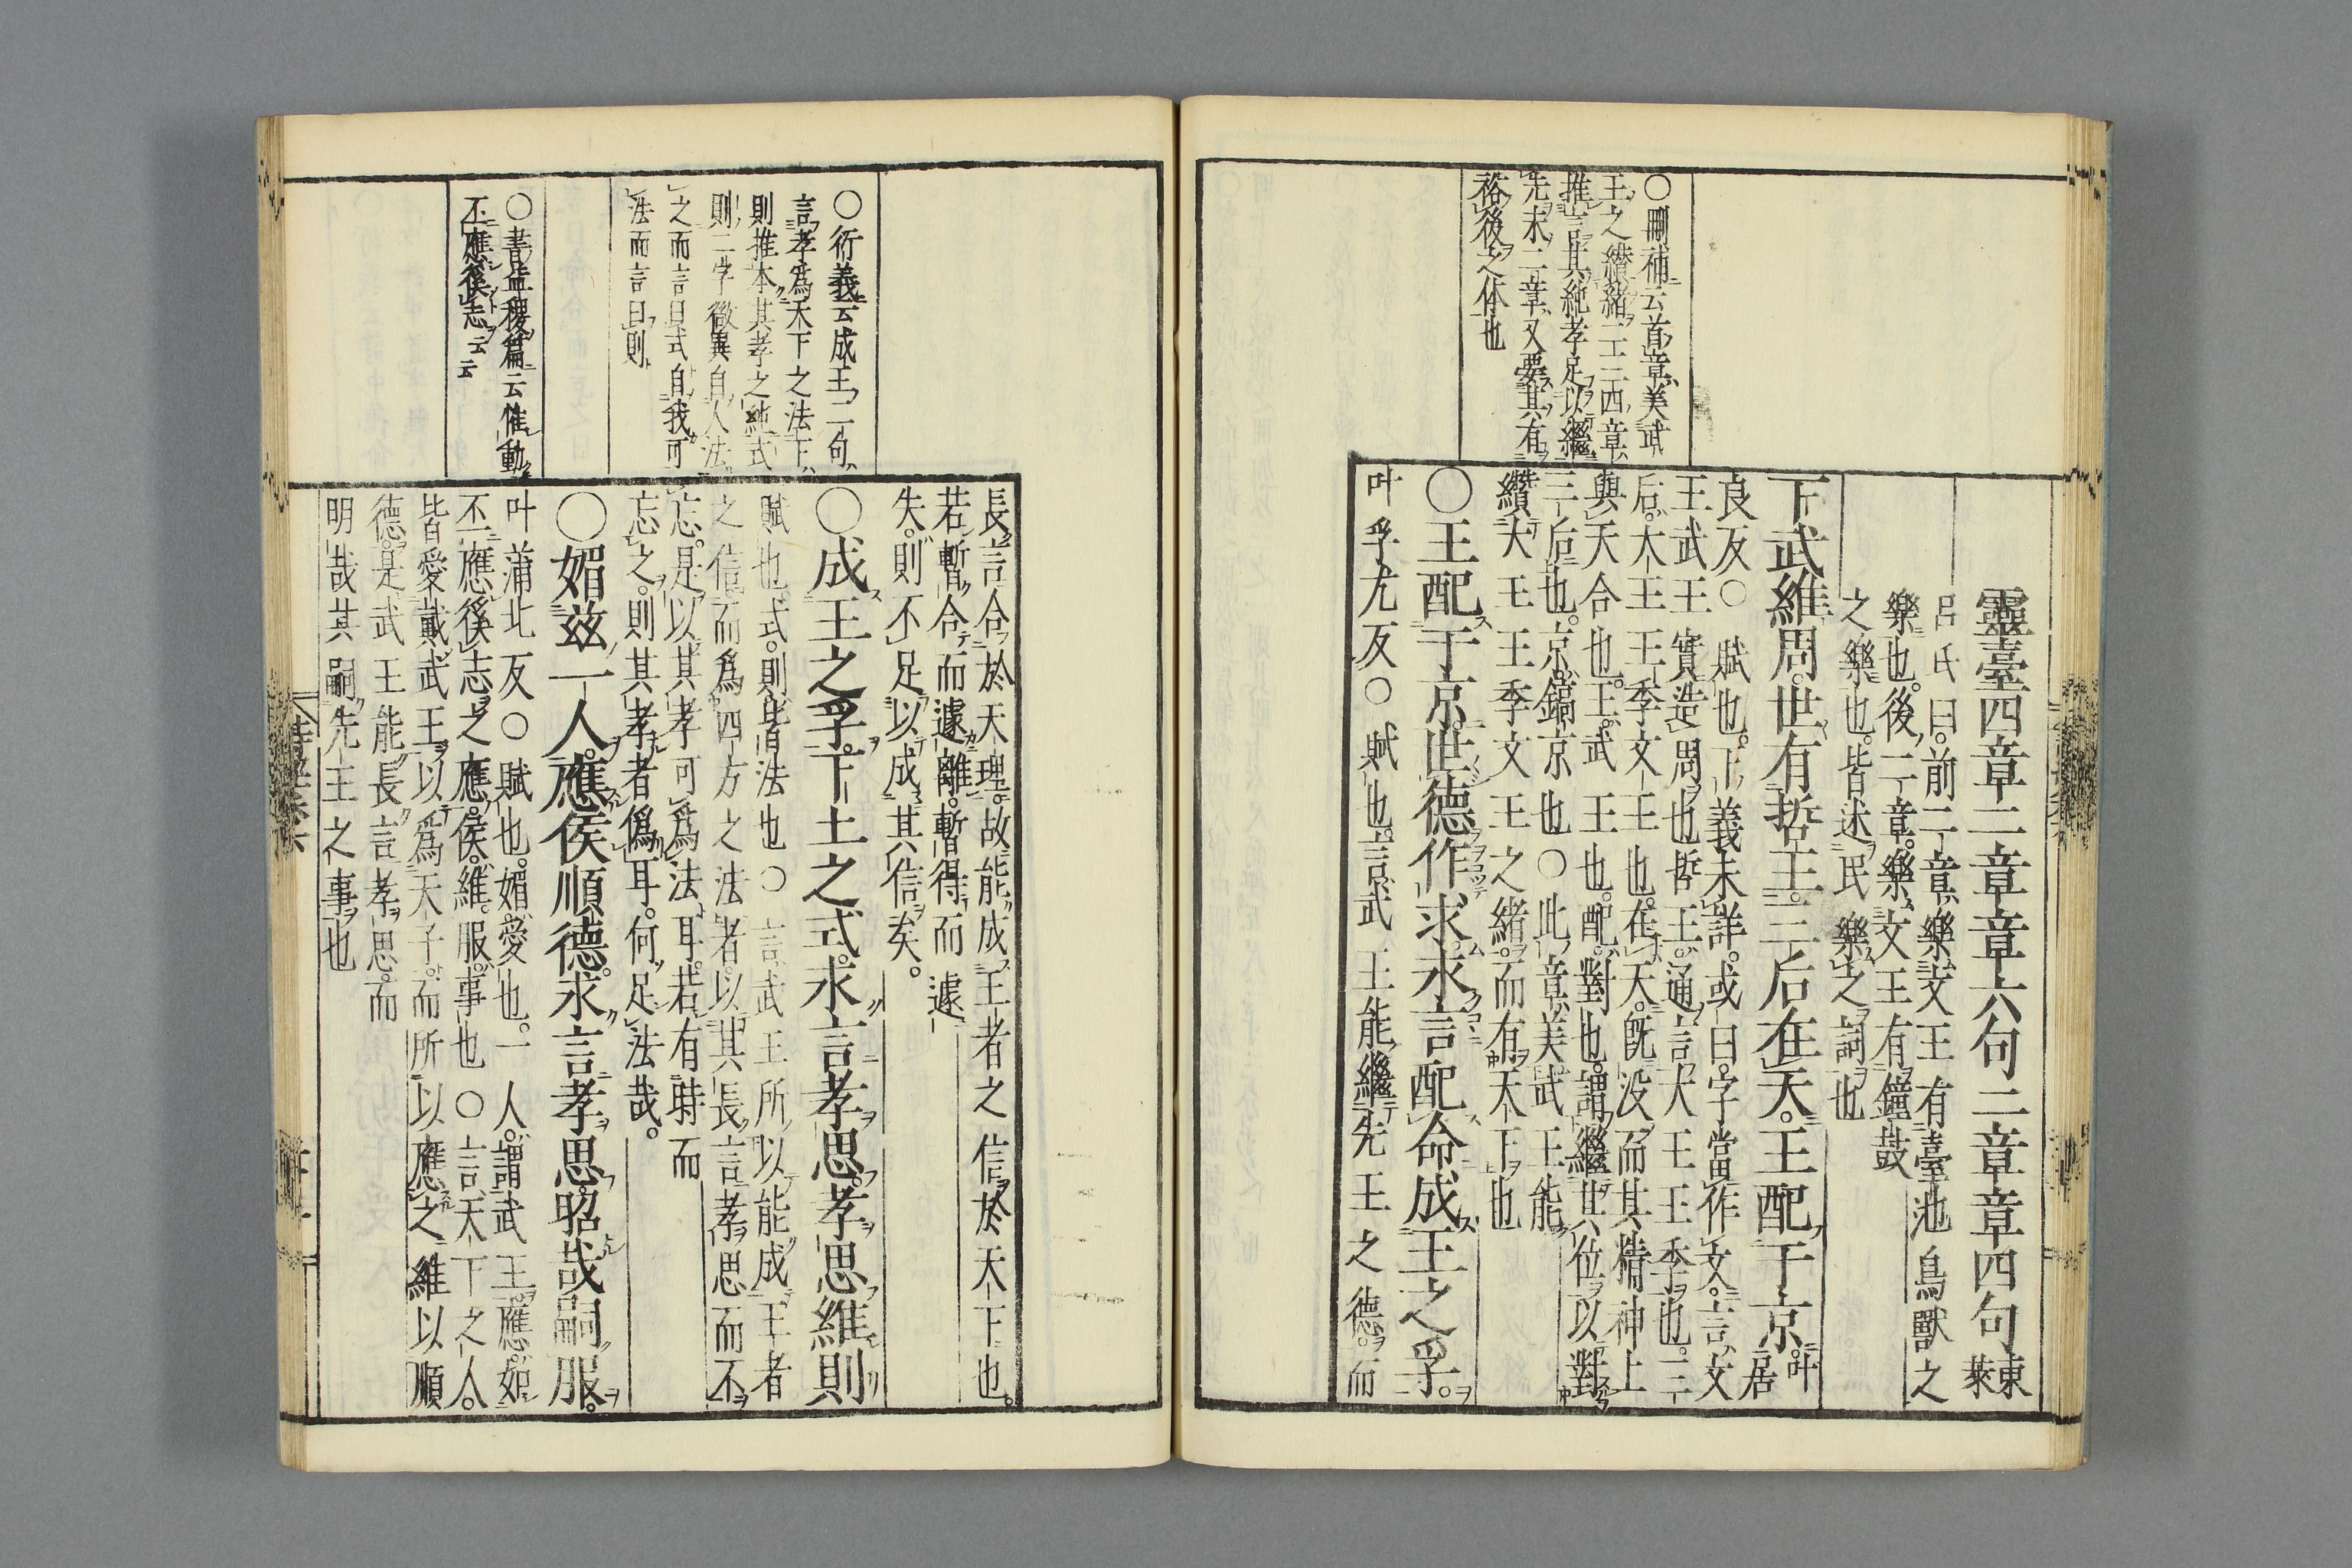 靈臺四章二章章六句二章章四句東萊
呂氏曰。前二章。樂文王有臺池鳥獸之
樂也。後二章。樂文王有鐘鼓
之樂也。皆述民樂之詞也
下武維周。世有哲王。三后在天。王配于京。叶居
良反○賦也。下義未詳。或曰。字當作文。言文
王武王實造周也。哲王。通言大王王季也。三
后。大王王季文王也。在天。旣沒而其精神上
與天合也。王。武王也。配。對也。謂繼其位以對
三后也。京。鎬京也○此章美武王能
纘大王王季文王之緒。而有天下也
○王配于京。世德作求。永言配命。成王之孚。
叶孚尤反○賦也。言武王能繼先王之德。而
○刪補云首章美武
王之纘緒二三四章
推言其純孝足以繼
先末二章又要其有
裕後之休也
長言合於天理。故能成王者之信於天下也。
若暫合而遽離。暫得而遽
失。則不足以成其信矣。
○成王之孚。下土之式。永言孝思。孝思維則
賦也。式。則。皆法也○言武王所以能成王者
之信。而爲四方之法者。以其長言孝思而不
忘。是以其孝可爲法耳。若有時而
忘之。則其孝者僞耳。何足法哉。
○媚茲一人。應侯順德。永言孝思。昭哉嗣服。
叶蒲北反○賦也。媚。愛也。一人。謂武王。應。如
丕應徯志之應。侯。維。服。事也○言天下之人。
皆愛戴武王。以爲天子。而所以應之維以順
德。是武王能長言孝思。而
明哉其嗣先王之事也
○衍義云成王二句
言孝爲天下之法下
則推本其孝之純式
則二字微異自人法
之而言曰式自我可
法而言曰則
○書益稷篇云惟動
丕應徯志云云